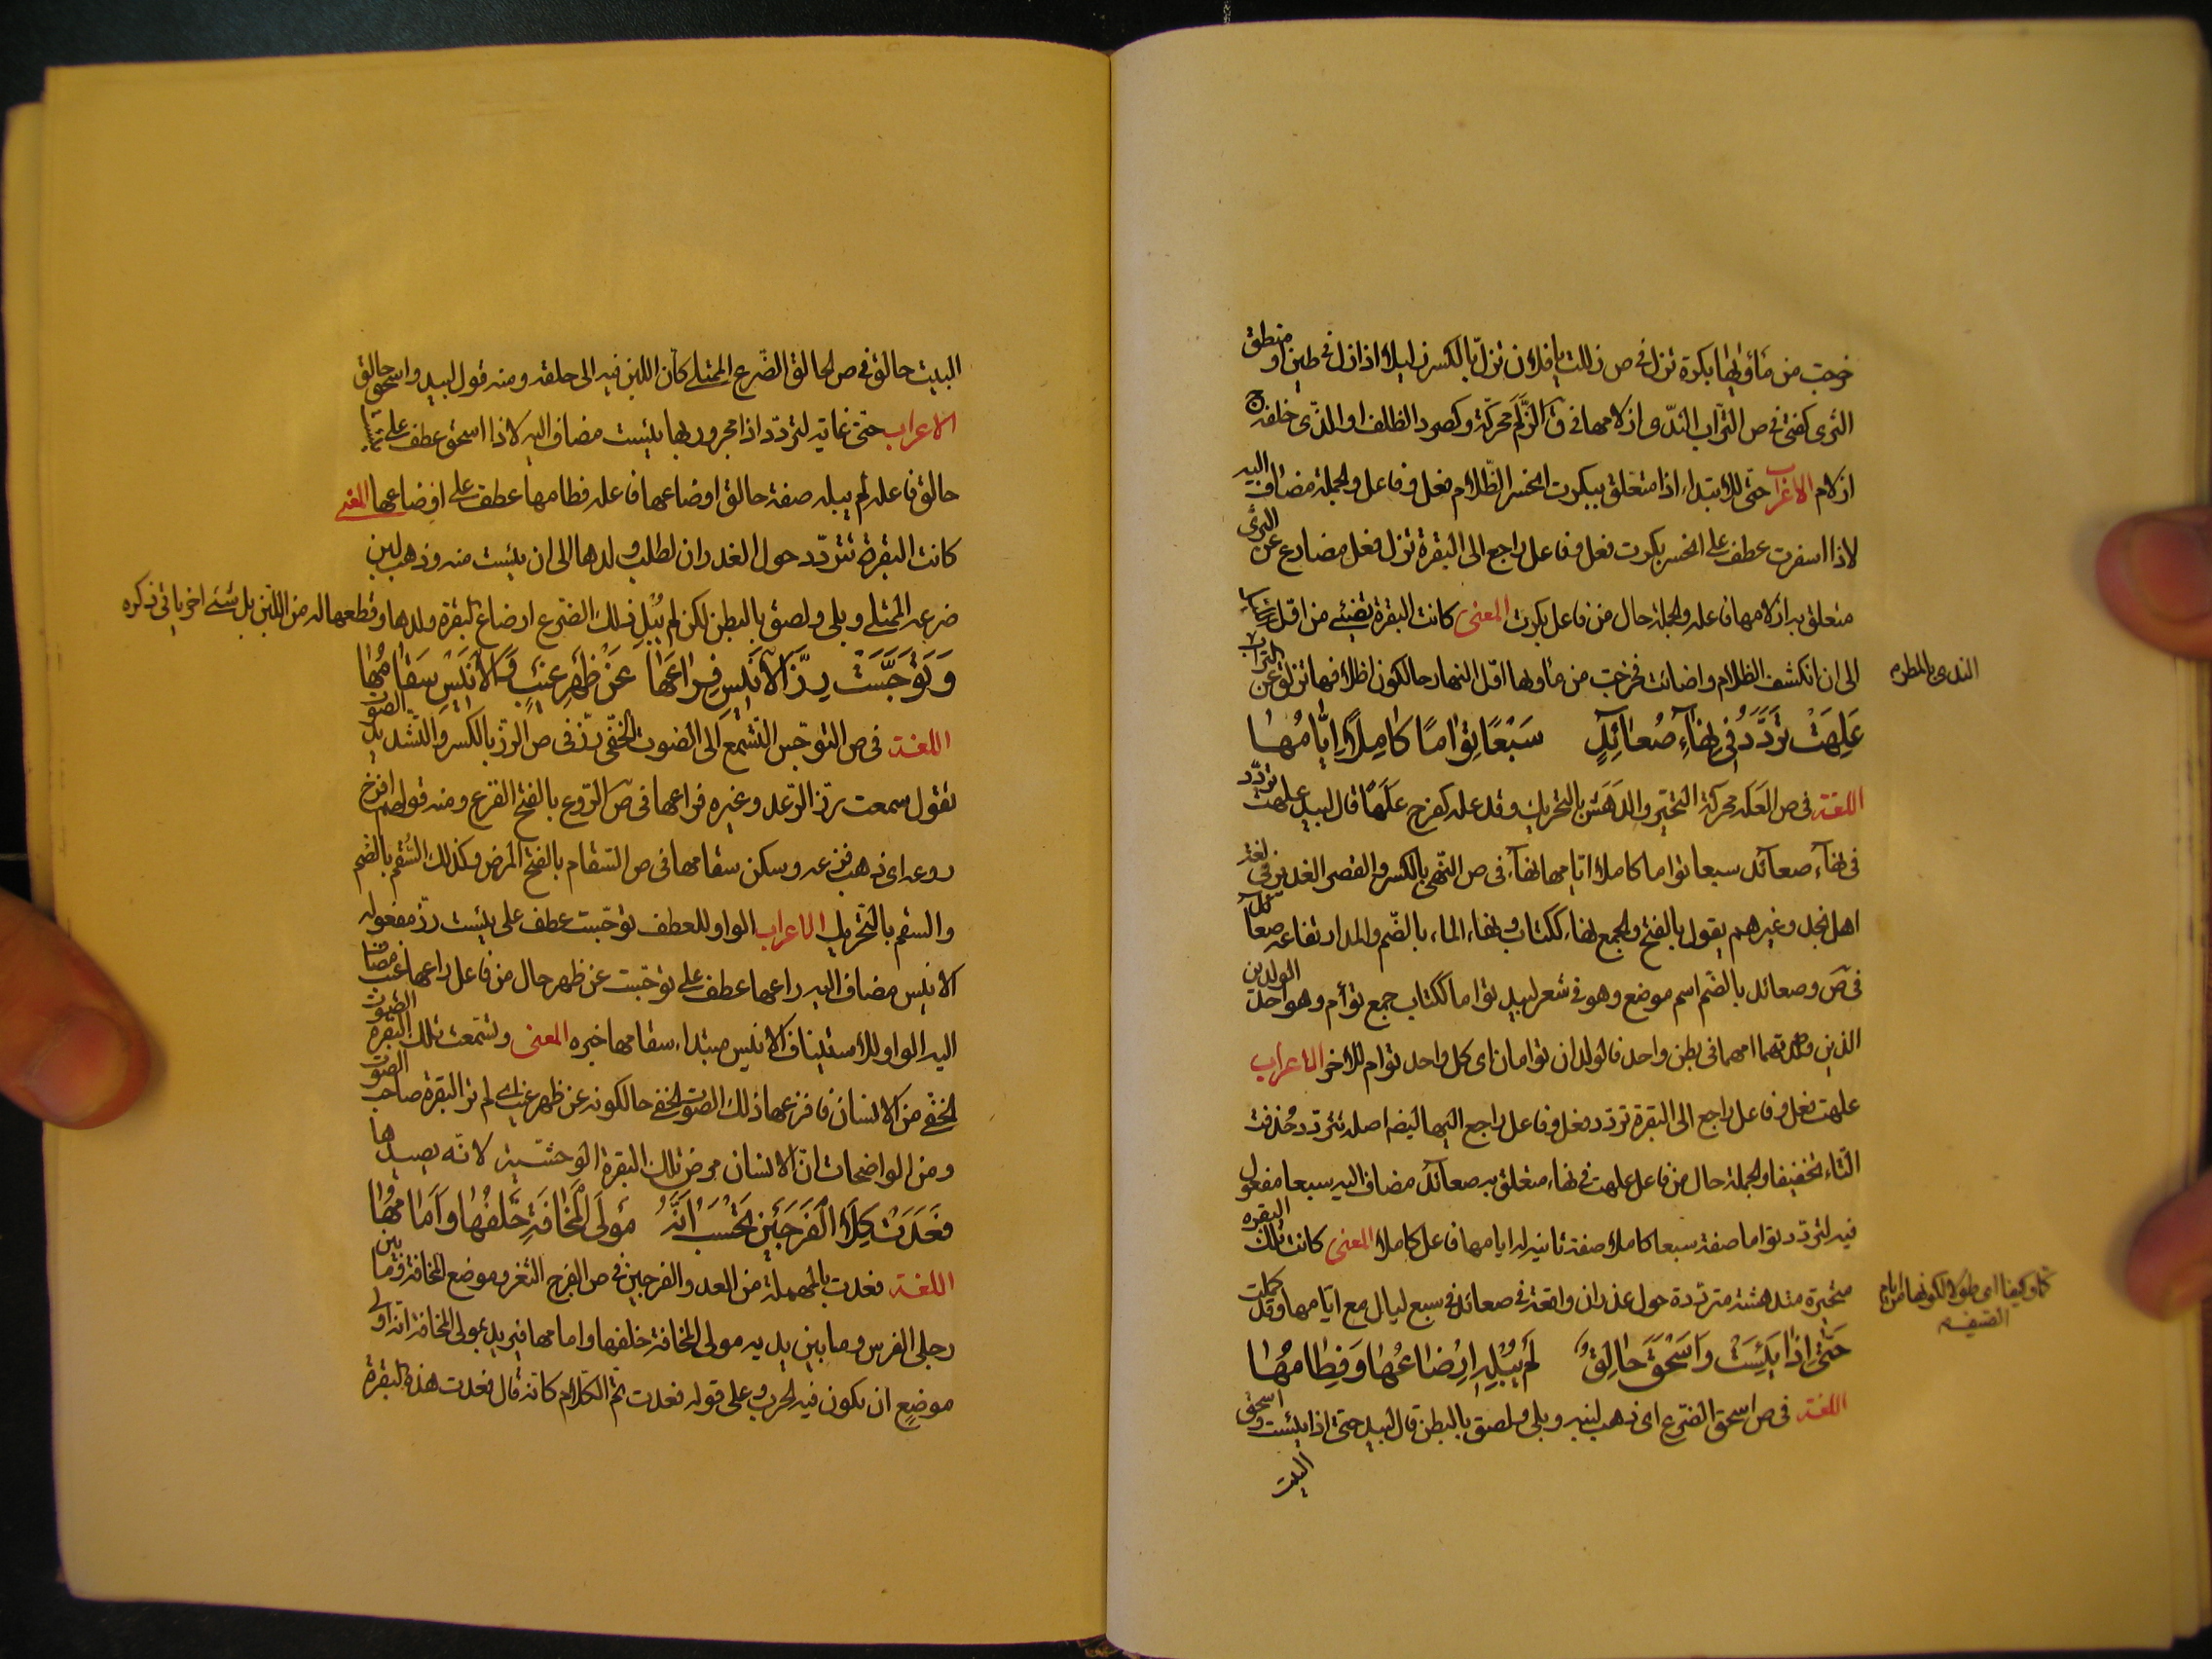 خرجت من مأويها بكرة تزل فى ص زللت يا فلان تزل بالكسر زليلا اذا زل فى طين او منطق
الثرى كفتى فى ص التراب الندى ازلامها فى ق الزلم محركة وكصرد الظلف او الذى خلفه ج
ازلام الاعراب حتى للابتداء اذا متعلق ببكرت انحسر الظلام فعل وفاعل والجملة مضاف اليه
لاذا اسفرت عطف على انحسر بكرت فعل وفاعل راجع الى البقرة تزل فعل مضارع عن الثرى
متعلق به ازلامها فاعله والجملة حال من فاعل بكرت المعنى كانت البقرة تضيئ من اول
الى ان انكشف الظلام واضائت فخرجت من مأويها اول النهار حالكون اظلافها تزلق عن التراب
الندى بالمطر
عَلِهَتْ تَرَدَّدُ فِى نِهَآءِ صُعَآئِدٍ سَبْعًا تِوَامًا كَامِلًا اَيَّامُهَا
اللغة فى ص العله محركة التحير والدهش بالتحريك وقد عله كفرح علها قال لبيد علهت تردد
فى نهاء صعآئد سبعا تواما كاملا ايامها نهآء فى ص النهى بالكسر والقصر الغدير فى لغة
اهل نجد وغيرهم يقول بالفتح والجمع نهاء ككتاب ونهاء الماء بالضم والمد ارتفاعه صعآئد
فى ص وصعائد بالضم اسم موضع وهو فى شعر لبيد تواما ككتاب جمع توأم وهو احد الولدين
الذين ولدتهما امهما فى بطن واحد فالولدان توامان اى كل واحد توام للاخر الاعراب
علهت فعل وفاعل راجع الى البقرة تردد فعل وفاعل راجع اليها ايضا اصله تتردد حذفت
التاء تخفيفا والجملة حال من فاعل علهت فى نهاء متعلق به صعائد مضاف اليه سبعا مفعول
فيه لتردد تواما صفة سبعا كاملا صفة ثانية له ايامها فاعل كاملا المعنى كانت تلك البقرة
متحيرة مندهشة مترددة حول غدران واقعة فى صعائد فى سبع ليال مع ايامها وقد كملت
كما وكيفا اى طولا لكونها من ايام
الصيف
حَتّٰى اِذَا يَئِسَتْ وَاَسْحَقَ حَالِقٌ لَمْ يُبْلِهِ اِرْضَاعُهَا وَفِطَامُهَا
اللغة فى ص اسحق الضرع اى ذهب لبنه وبلى ولصق بالبطن قال لبيد حتى اذا يئست واسحق
البيت
البيت حالق فى ص الحالق الضرع الممتلى كأن اللبن فيه الى حلقه ومنه قول لبيد واسحق حالق
الاعراب حتى غاية لتردد اذا مجرور بها يئست مضاف اليه لاذا اسحق عطف على
حالق فاعله لم يبله صفة حالق ارضاعها فاعله فطامها عطف على ارضاعها المعنى
كانت البقرة تتردد حول الغدران لطلب ولدها الى ان يئست منه وذهب لبن
ضرعه الممتلى وبلى ولصق بالبطن لكن لم يبل ذلك الضرع ارضاع البقرة ولدها وقطعها له من اللبن بل شئ اخر ياتى ذكره
وَتَوَجَّسَتْ رِزَّ الْاَنِيسِ فَرَاعَهَا عَنْ ظَهْرِ غَيْبٍ وَالْاَنِيسُ سَقَامُهَا
اللغة فى ص التوجس التسمع الى الصوت الخفى رز فى ص الرز بالكسر والتشديد الصوت
تقول سمعت رز الرعد وغيره فراعها فى ص الروع بالفتح الفزع ومنه قولهم افرخ
روعه اى ذهب فزعه وسكن سقامها فى ص السقام بالفتح المرض وكذلك السقم بالضم
والسقم بالتحريك الاعراب الواو للعطف توجست عطف على يئست رز مفعوله
الانيس مضاف اليه راعها عطف على توجست عن ظهر حال من فاعل راعها غيب مضاف
اليه الواو للاستيناف الانيس مبتداء سقامها خبره المعنى وتسمعت تلك البقرة الصوت
الخفى من الانسان فافزعها ذلك الصوت الخفى حالكونه عن ظهر غيب اى لم تر البقرة صاحب الصوت
ومن الواضحات ان الانسان مرض تلك البقرة الوحشية لانه يصيدها
فَغَدَتْ كِلَا الْفَرْجَيْنِ تَحْسَبُ اَنَّهُ مَوْلَى الْمَخَافَةِ خَلْفُهَا وَاَمَامُهَا
اللغة فعدت بالمهملة من العدو الفرجين فى ص الفرج الثغر وموضع المخافة وما بين
رجلى الفرس وما بين يديه مولى المخافة خلفها وامامها فيريد بمولى المخافة انه اولى
موضع ان يكون فيه الحرب وعلى قوله فعدت تم الكلام كانه قال فعدت هذه البقرة